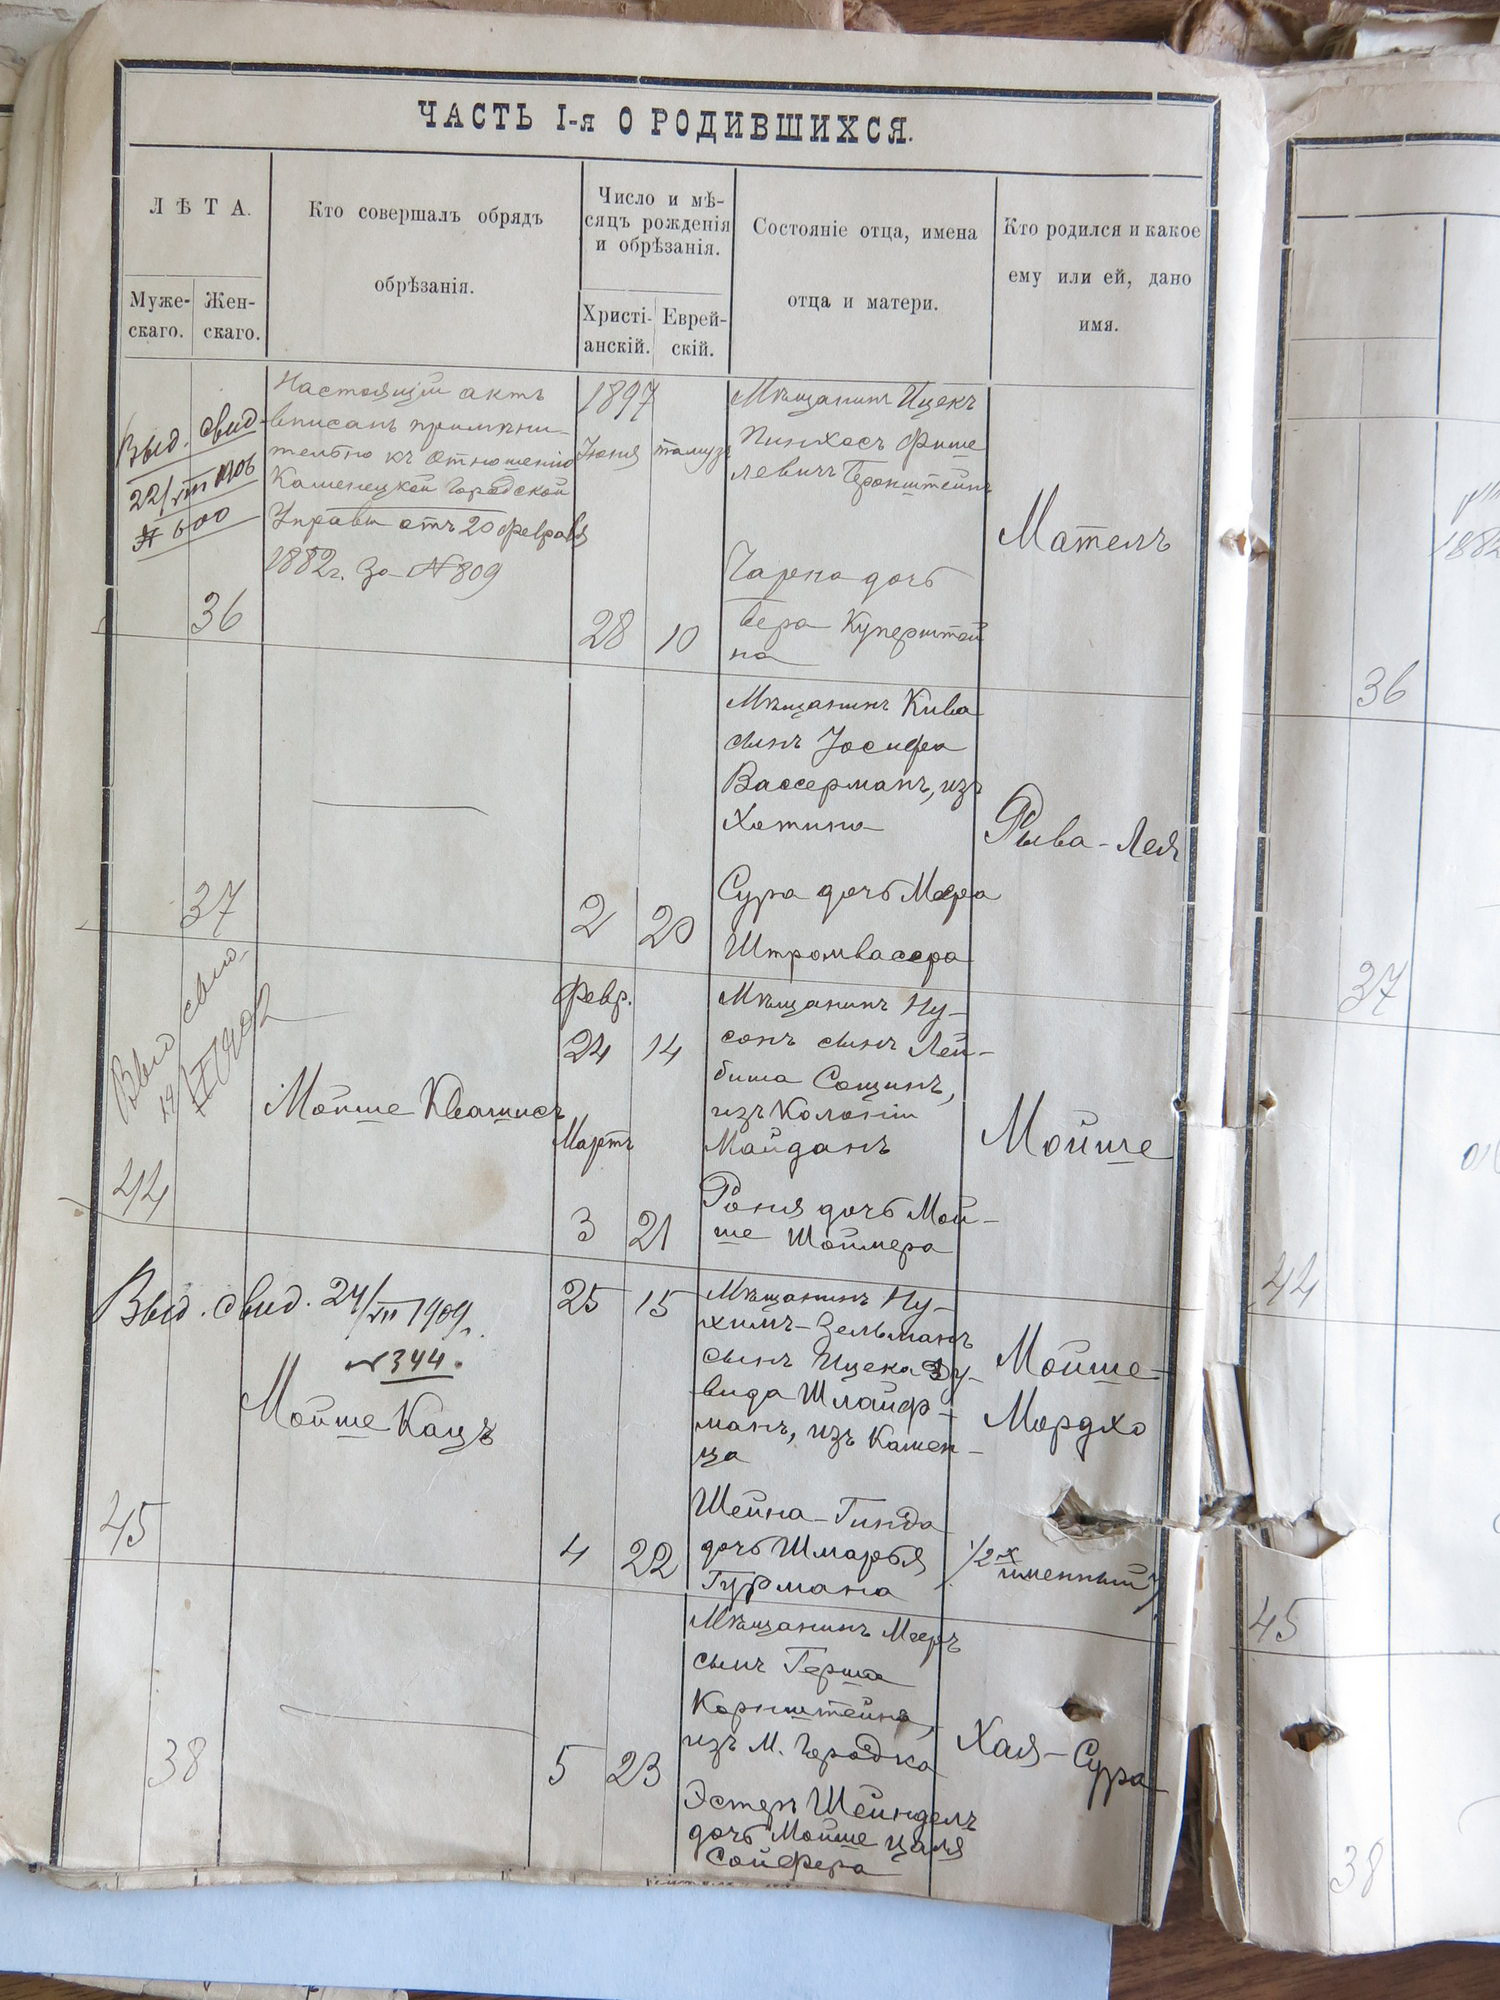 ЧАСТЬ I-я О РОДИВШИХСЯ.
ЛѢТА.
Муже-
скаго.
Жен-
скаго.
Кто совершалъ обрядъ
обрѣзанія.
Число и мѣ-
сяцъ рожденія
и обрѣзанія.
Христі-
анскій.
Еврей-
скій.
Состояніе отца, имена
отца и матери.
Кто родился и какое
ему или ей, дано
имя.
Выд. свид.
22/VIII 1906
№ 600
36
Настоящій актъ
вписанъ примѣни-
тельно къ отношенію
Каменецкой Городской
Управы отъ 20 февраля
1882 г. за № 809
1897
Іюня
тамуз
28
10
Мѣщанинъ Ицекъ
Пинхасъ Фише
левичъ Беронштейнъ
Чарна дочь
Бера Куперштей
на
Мателъ
37
2
20
Мѣщанинъ Кива
сынъ Іосифа
Вассерманъ, изъ
Хотина
Сура дочь Меера
Штромвассера
Рыва-Лея
Выд свид
12/XI 1902
44
Мойше Квашисъ
Февр.
24
14
Мартъ
3
21
Мѣщанинъ Ну-
сонъ сынъ Лей-
биша Сощинъ,
изъ Колоніи
Майданъ
Рония дочь Мой-
ше Шоймера
Мойше
Выд. свид. 24/VII 1909 г.
№ 344.
45
Мойше Кацъ
25
15
4
22
Мѣщанинъ Ну-
химъ-Зельманъ
сынъ Ицека Ду-
вида Шлайф-
манъ, изъ Камен-
ца
Шейна-Гинда
дочь Шмарья
Гурмана
Мойше-
Мордхо
(2х
именный)
38
5
23
Мѣщанинъ Мееръ
сынъ Герша
Корнштейна,
изъ м. Городка
Эстеръ Шейнделъ
дочь Мойше Цаля
Сойфера
Хая-Сура
36
37
44
45
38